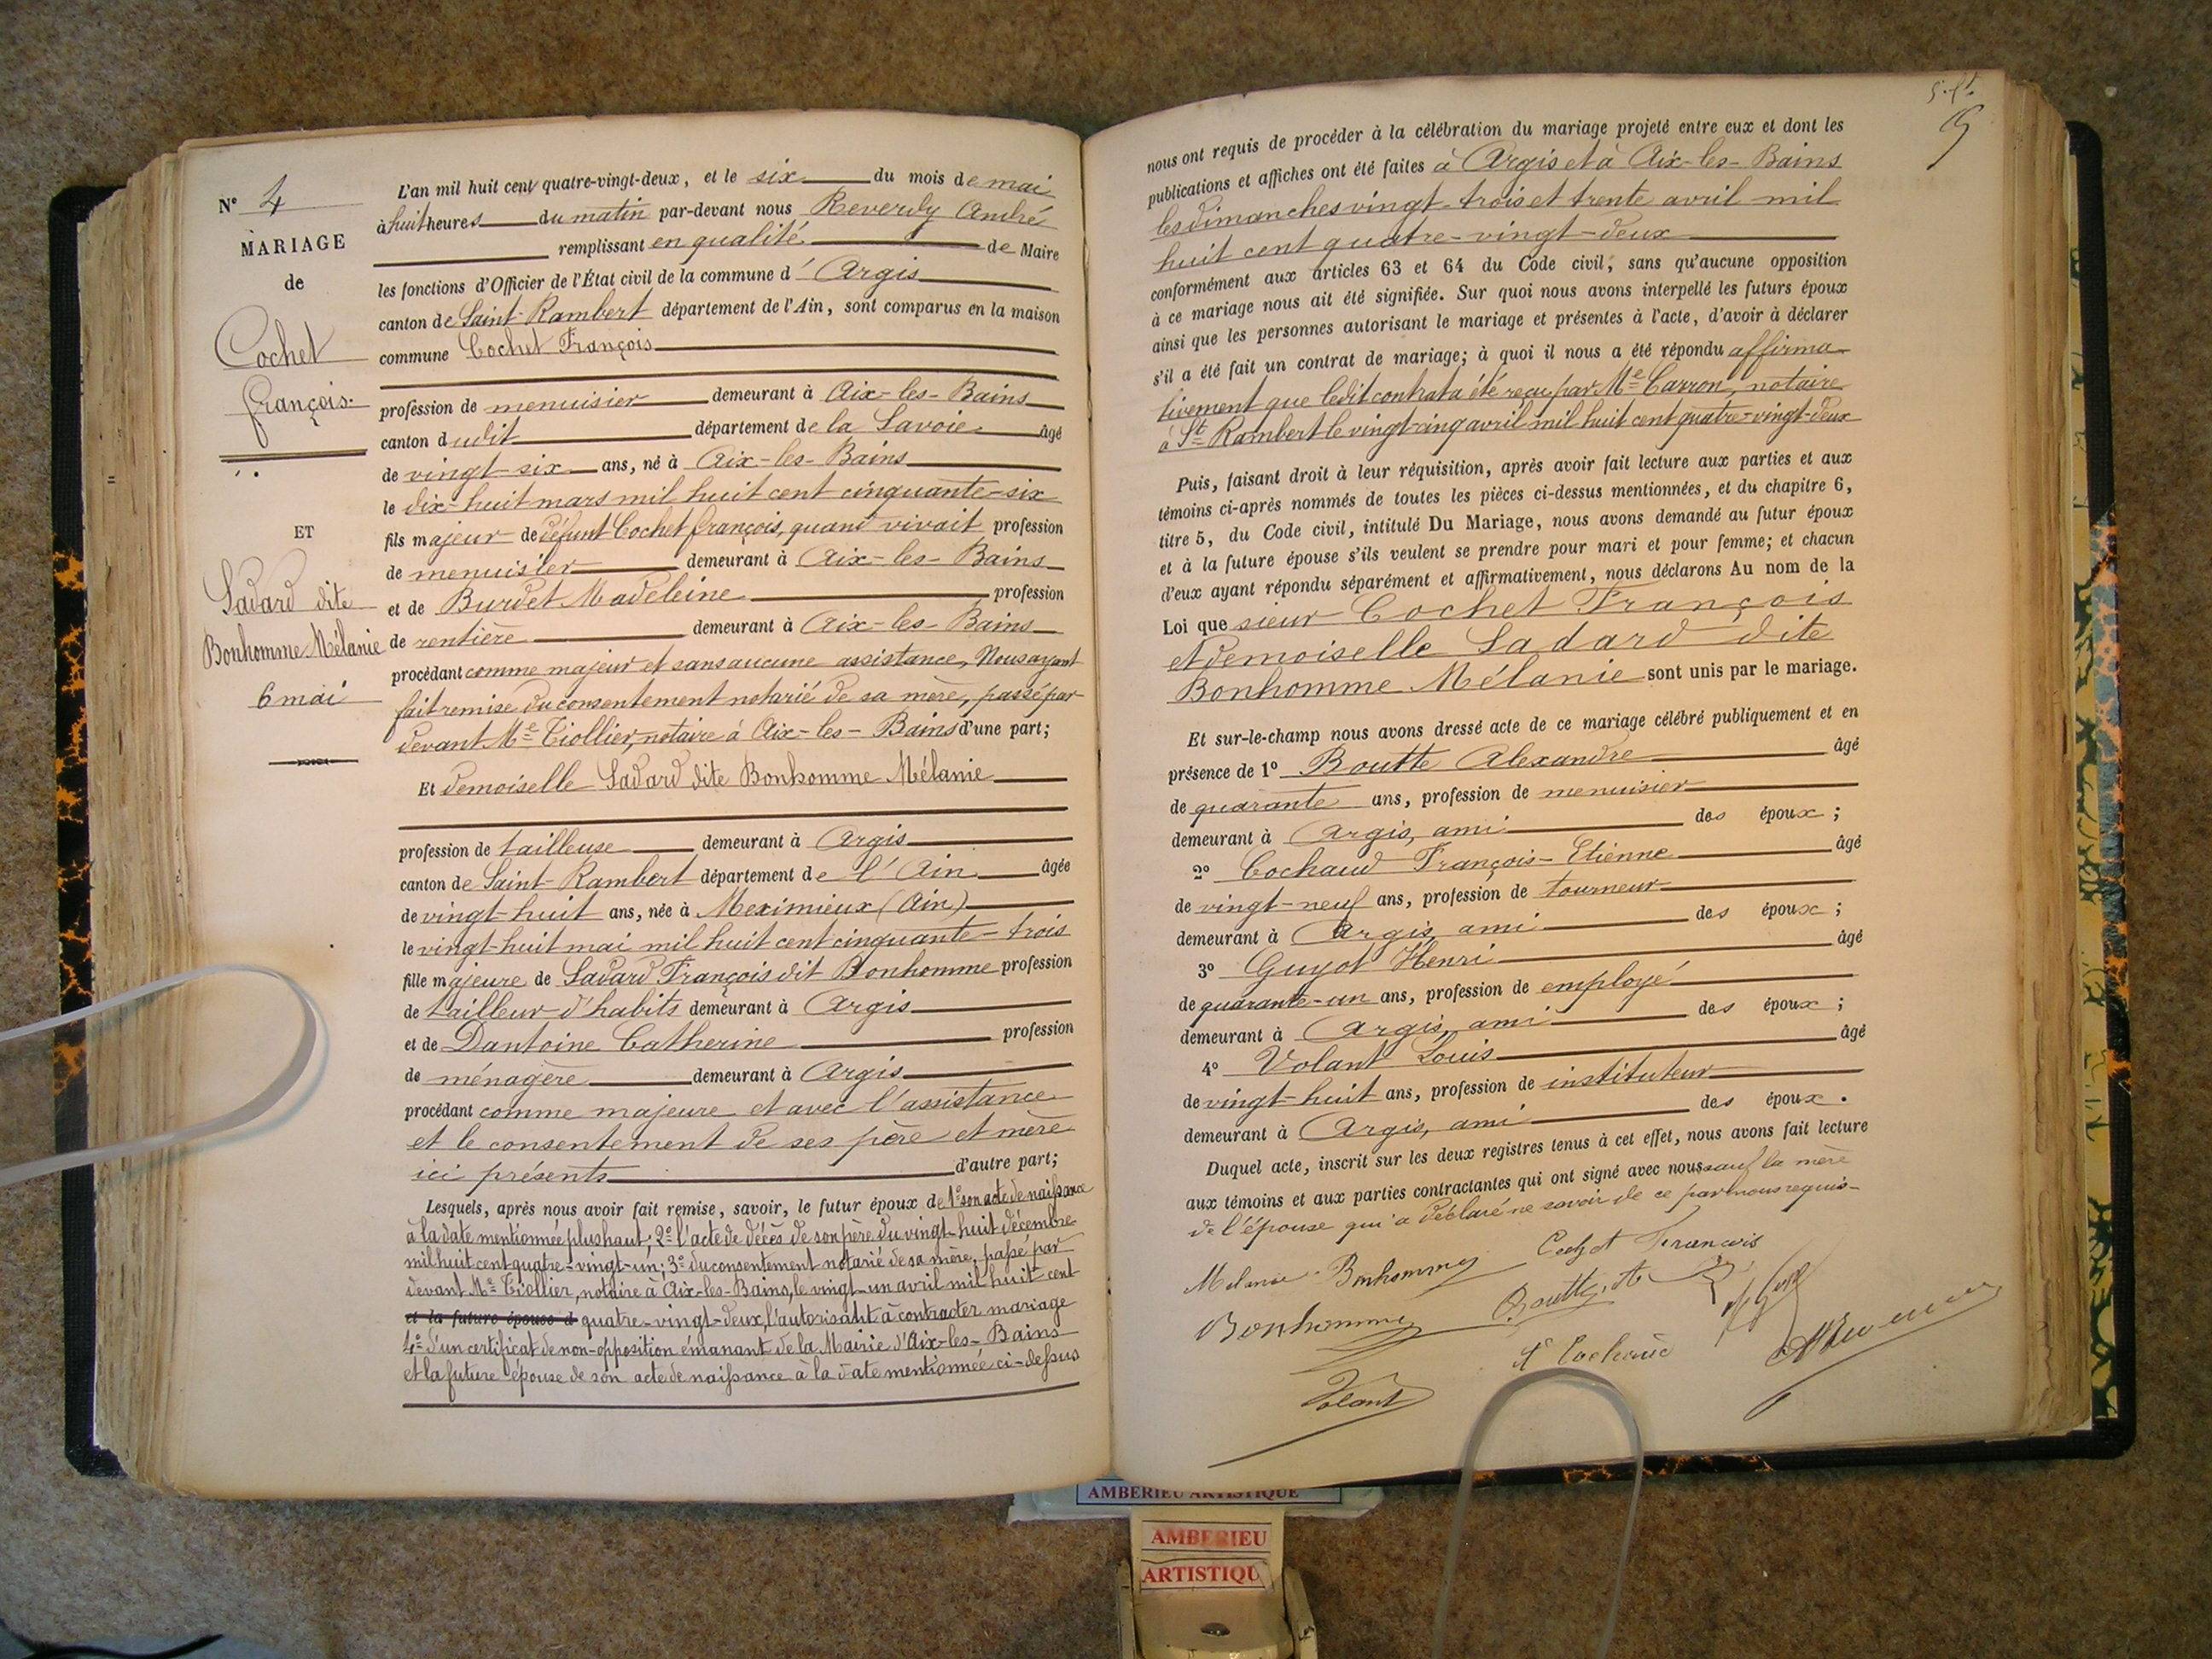 N° 4
MARIAGE
de
Cochet
François.
ET
Sadard dite
Bonhomme Mélanie
6 mai
L'an mil huit cent quatre-vingt-deux, et le six du mois de mai
à huit heures du matin par-devant nous Reverdy André
remplissant en qualité de Maire
les fonctions d'Officier de l'État civil de la commune d' Argis
canton de Saint-Rambert département de l'Ain, sont comparus en la maison
commune Cochet François
profession de menuisier demeurant à Aix-les-Bains
canton dudit département de la Savoie âgé
de vingt-six ans, né à Aix-les-Bains
le dix-huit mars mil huit cent cinquante-six
fils majeur de défunt Cochet François, quand vivait profession
de menuisier demeurant à Aix-les-Bains
et de Burdet Madeleine profession
de rentière demeurant à Aix-les-Bains
procédant comme majeur et sans aucune assistance, Nous ayant
fait remise du consentement notarié de sa mère, passé par
devant Me Tiollier, notaire à Aix-les-Bains d'une part;
Et demoiselle Sadard dite Bonhomme Mélanie
profession de tailleuse demeurant à Argis
canton de Saint-Rambert département de l'Ain âgée
de vingt-huit ans, née à Meximieux (Ain)
le vingt-huit mai mil huit cent cinquante-trois
fille majeure de Sadard François dit Bonhomme profession
de tailleur d'habits demeurant à Argis
et de Dantoine Catherine profession
de ménagère demeurant à Argis
procédant comme majeure et avec l'assistance
et le consentement de ses père et mère
ici présents d'autre part;
Lesquels, après nous avoir fait remise, savoir, le futur époux de 1° son acte de naissance
à la date mentionnée plus haut; 2° l'acte de décès de son père du vingt-huit décembre
mil huit cent quatre-vingt-un; 3° du consentement notarié de sa mère, passé par
devant Me Tiollier, notaire à Aix-les-Bains, le vingt-un avril mil huit cent
et la future épouse d quatre-vingt-deux, l'autorisant à contracter mariage
4° d'un certificat de non-opposition émanant de la Mairie d'Aix-les-Bains
et la future épouse de son acte de naissance à la date mentionnée ci-dessus
nous ont requis de procéder à la célébration du mariage projeté entre eux et dont les
publications et affiches ont été faites à Argis et à Aix-les-Bains
les dimanches vingt-trois et trente avril mil
huit cent quatre-vingt-deux
conformément aux articles 63 et 64 du Code civil, sans qu'aucune opposition
à ce mariage nous ait été signifiée. Sur quoi nous avons interpellé les futurs époux
ainsi que les personnes autorisant le mariage et présentes à l'acte, d'avoir à déclarer
s'il a été fait un contrat de mariage; à quoi il nous a été répondu affirma
tivement que ledit contrat a été reçu par Me Carron, notaire
à St Rambert le vingt-cinq avril mil huit cent quatre-vingt-deux
Puis, faisant droit à leur réquisition, après avoir fait lecture aux parties et aux
témoins ci-après nommés de toutes les pièces ci-dessus mentionnées, et du chapitre 6,
titre 5, du Code civil, intitulé Du Mariage, nous avons demandé au futur époux
et à la future épouse s'ils veulent se prendre pour mari et pour femme; et chacun
d'eux ayant répondu séparément et affirmativement, nous déclarons Au nom de la
Loi que sieur Cochet François
et demoiselle Sadard dite
Bonhomme Mélanie sont unis par le mariage.
Et sur-le-champ nous avons dressé acte de ce mariage célébré publiquement et en
présence de 1° Boutte Alexandre âgé
de quarante ans, profession de menuisier
demeurant à Argis, ami des époux;
2° Cochaud François-Etienne âgé
de vingt-neuf ans, profession de tourneur
demeurant à Argis, ami des époux;
3° Guyot Henri âgé
de quarante-un ans, profession de employé
demeurant à Argis, ami des époux;
4° Volant Louis âgé
de vingt-huit ans, profession de instituteur
demeurant à Argis, ami des époux.
Duquel acte, inscrit sur les deux registres tenus à cet effet, nous avons fait lecture
aux témoins et aux parties contractantes qui ont signé avec nous sauf la mère
de l'épouse qui a déclaré ne savoir de ce par nous requis
Mélanie Bonhomme Cochet Francois
Bonhomme Boutte A
Volant
AMBERIEU ARTISTIQUE
AMBERIEU
ARTISTIQU